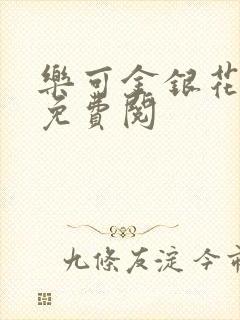 樂可金銀花
免費閱
九條友淀今市